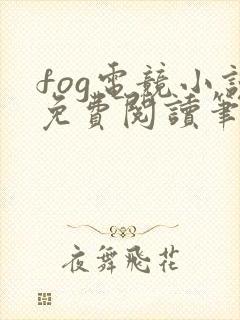 fog電競小說
免費閱讀筆
夜舞飛花